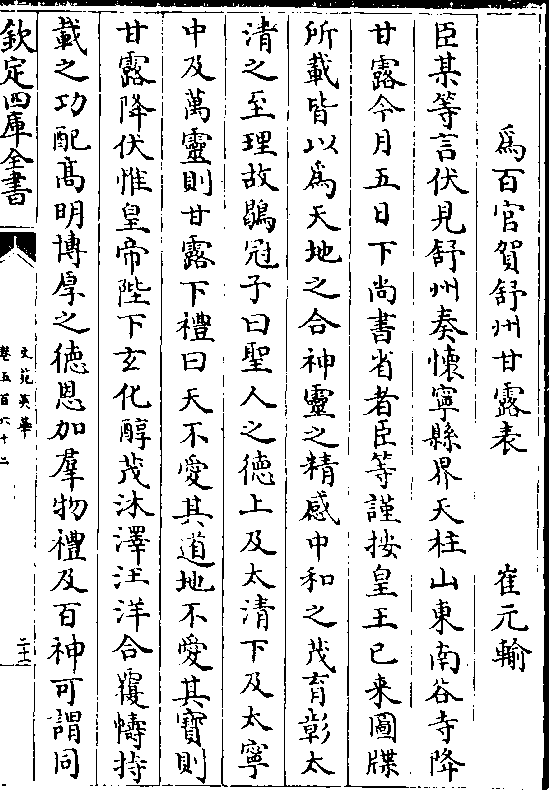 爲百官賀舒州甘露表　崔元輸
臣某等言伏見舒州奏懷寧縣界天柱山東南谷寺降
甘露今月五日下尚書省者臣等謹按皇王已来圖牒
所載皆以爲天地之合神靈之精感中和之茂育彰太
清之至理故鶡冠子曰聖人之德上及太清下及太寧
中及萬靈則甘露下禮曰天不愛其道地不愛其寶則
甘露降伏惟皇帝陛下玄化醇茂沐澤汪洋合覆幬持
載之功配高明博厚之德恩加羣物禮及百神可謂同
欽定四庫全書
文苑英華
卷五百六十二
二十二